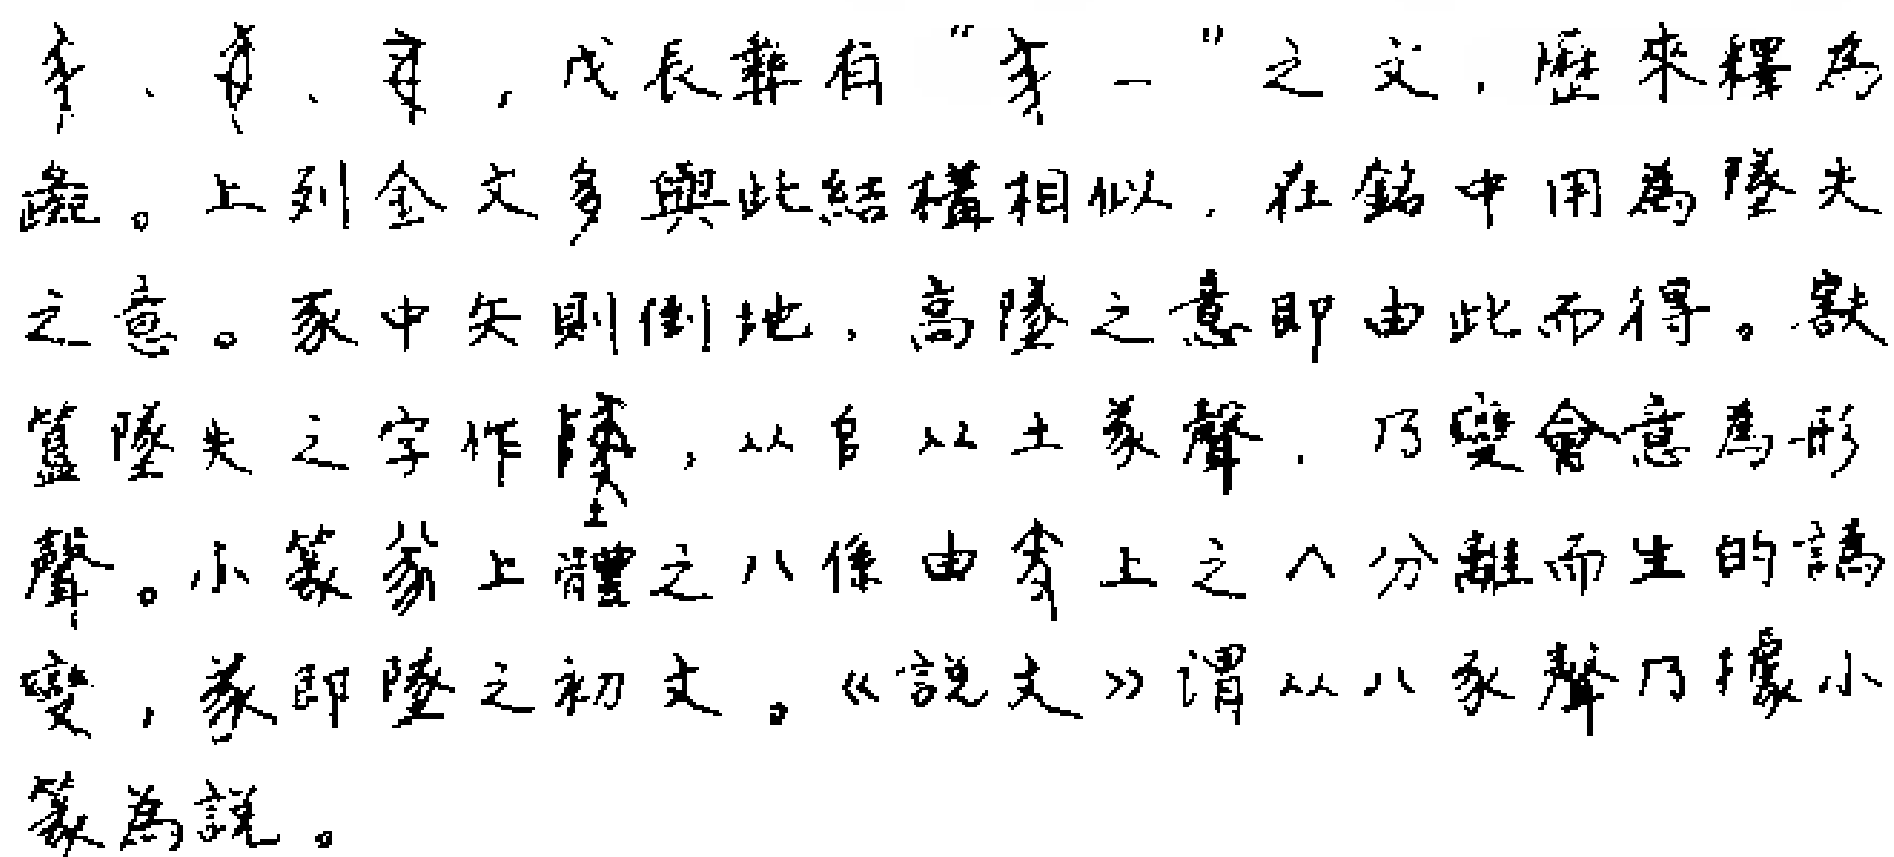 、、，戊長彝有“一”之文，歷來釋為
彘。上列金文多與此結構相似，在銘中用為墜失
之意。豕中矢則倒地，高墜之意即由此而得。㝬
簋墜失之字作，从𠂤从土㒸聲，乃變會意為形
聲。小篆㒸上體之八係由上之∧分離而生的譌
變，㒸即墜之初文。《說文》謂从八豕聲乃據小
篆為說。